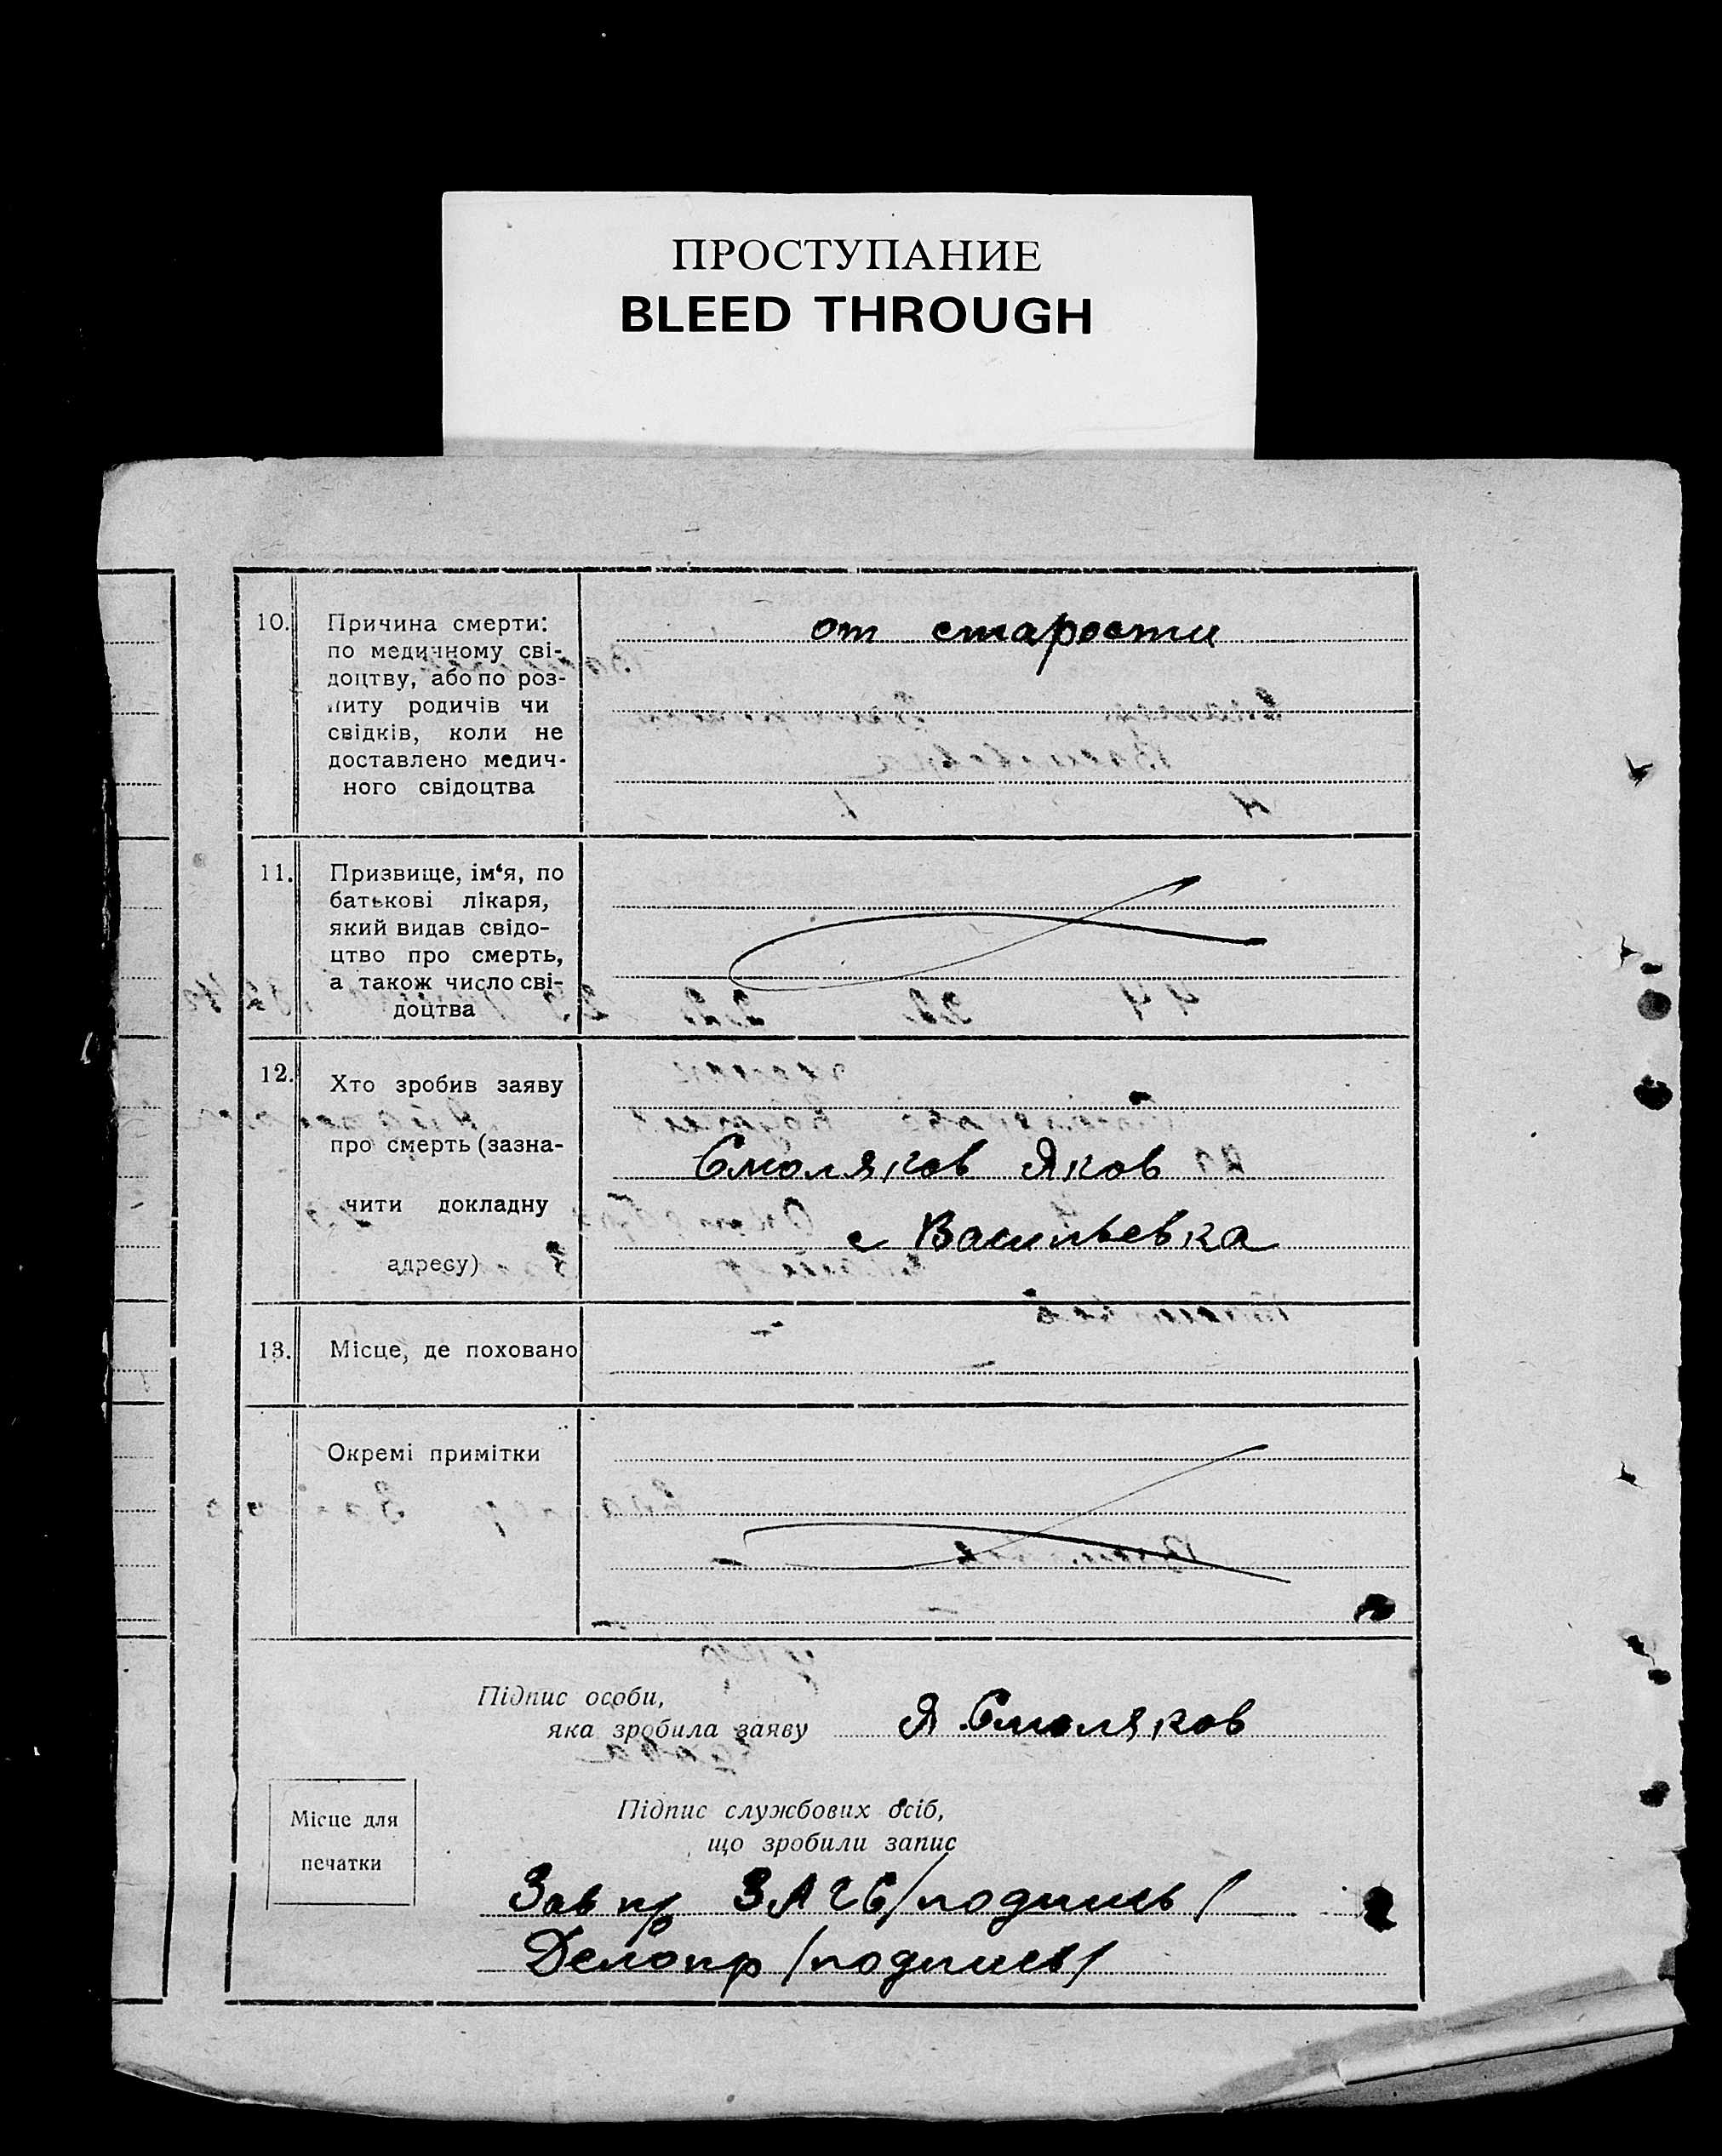 ПРОСТУПАНИЕ
BLEED THROUGH
10. Причина смерти:
по медичному сві-
доцтву, або по роз-
питу родичів чи
свідків, коли не
доставлено медич-
ного свідоцтва
от старости
11. Призвище, ім‘я, по
батькові лікаря,
який видав свідо-
цтво про смерть,
а також число сві-
доцтва
12. Хто зробив заяву
про смерть (зазна-
чити докладну
адресу)
Смоляков Яков
с Васильевка
13. Місце, де поховано
–
Окремі примітки
Підпис особи,
яка зробила заяву Я Смоляков
Місце для
печатки
Підпис службових осіб,
що зробили запис
Зав пр ЗАГС /подпись/
Делопр /подпись/